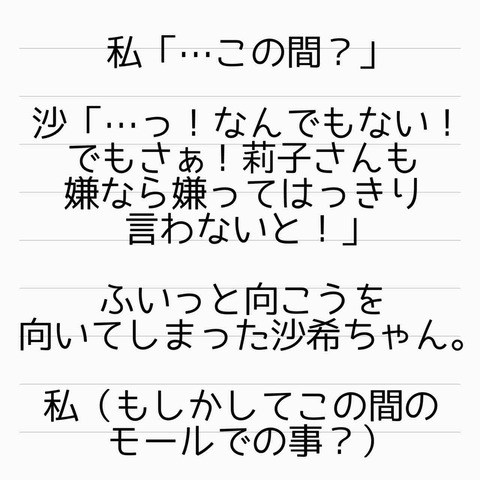 私「…この間？」
沙「…っ！なんでもない！
でもさぁ！莉子さんも
嫌なら嫌ってはっきり
言わないと！」
ふいっと向こうを
向いてしまった沙希ちゃん。
私（もしかしてこの間の
モールでの事？）